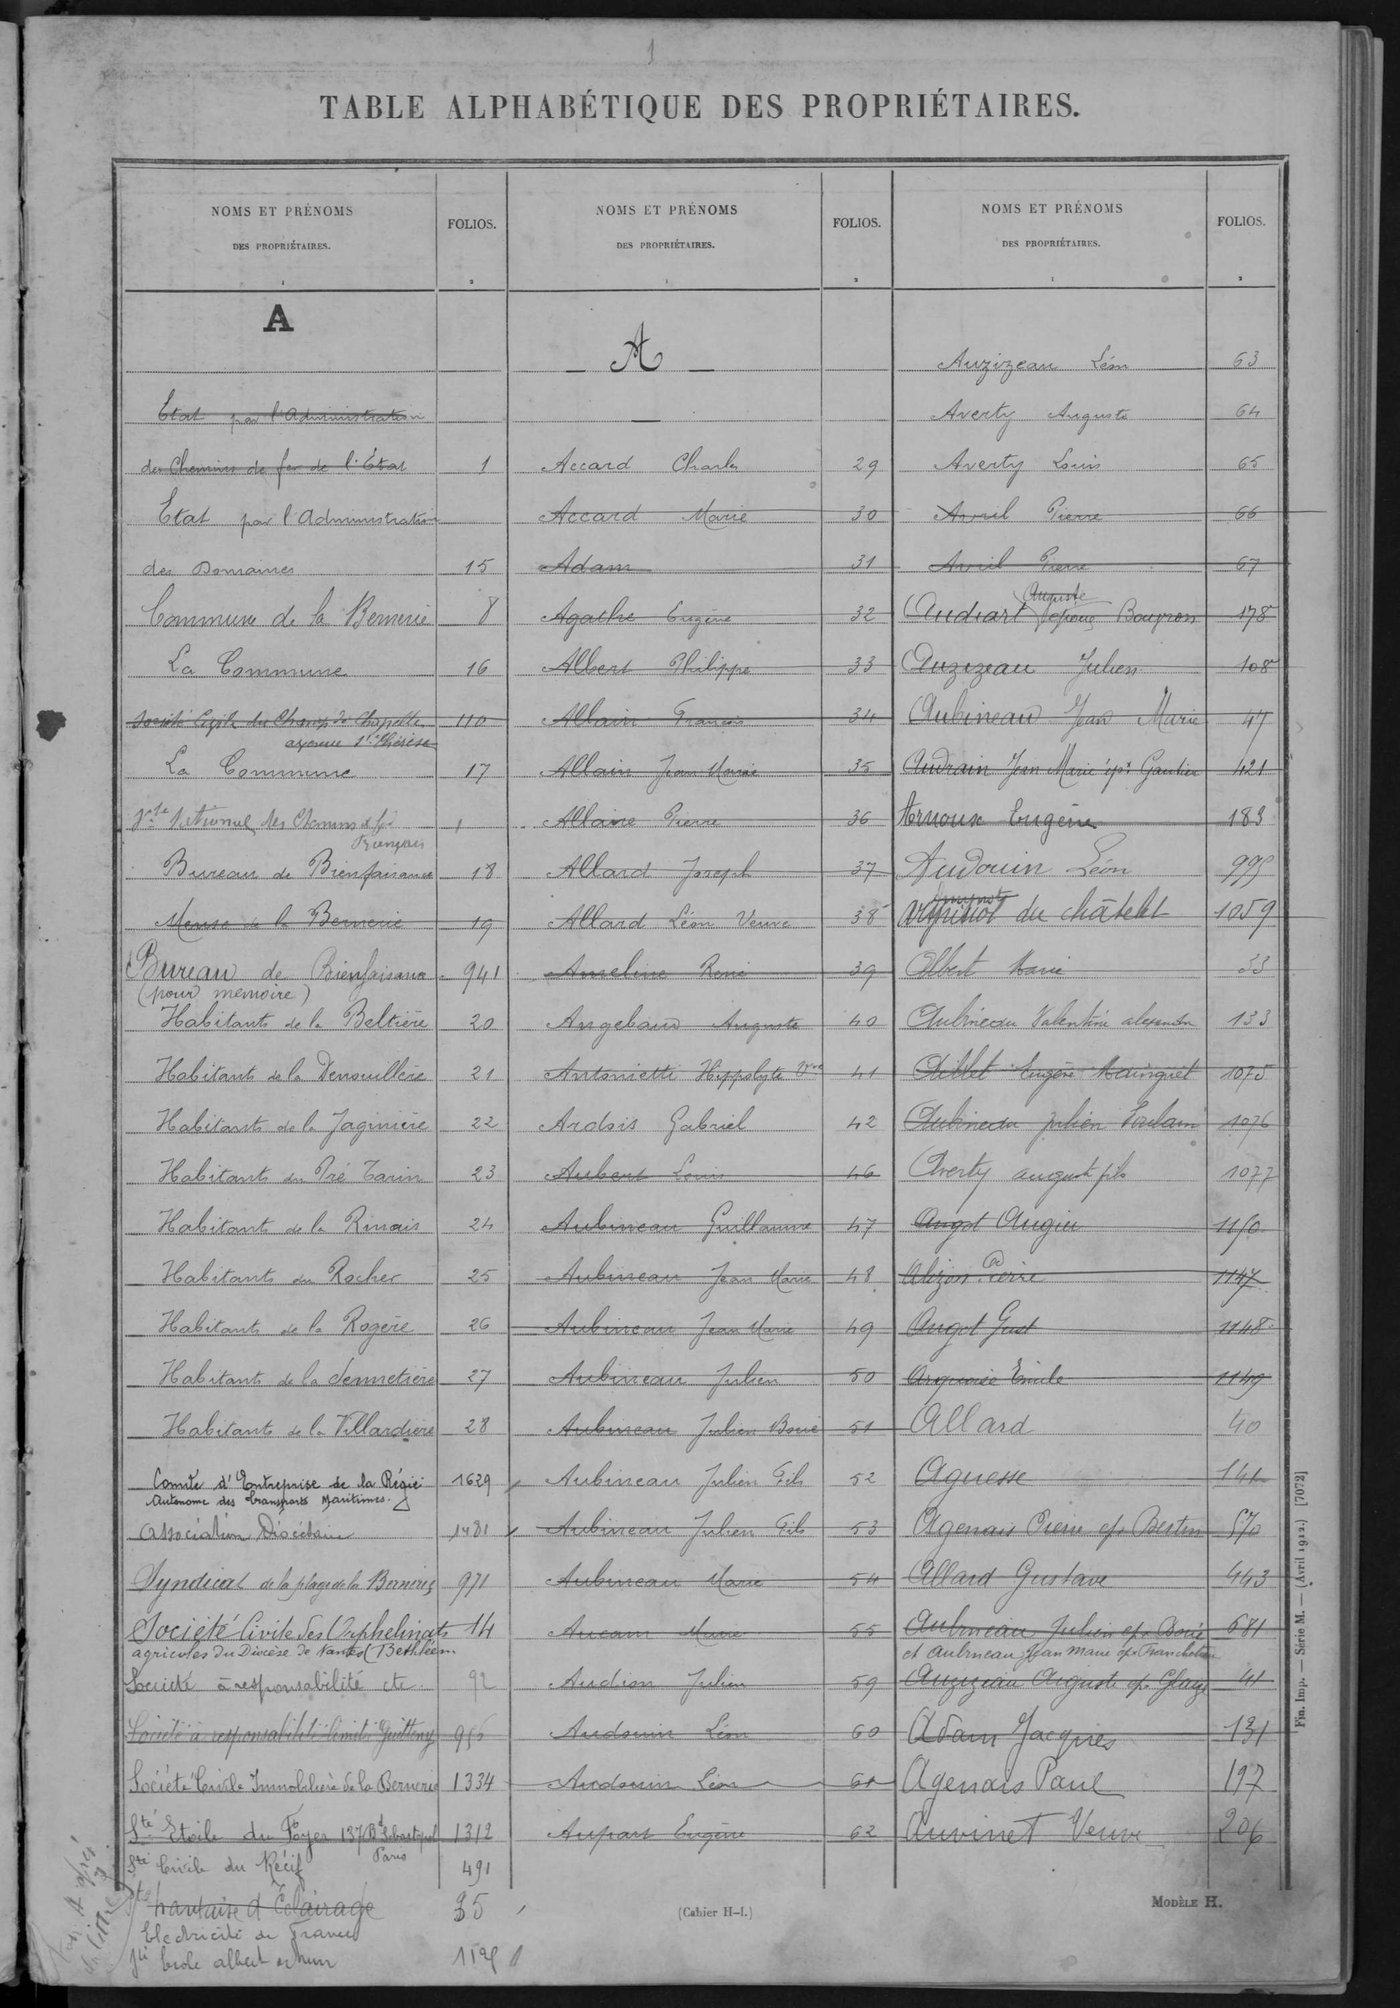 1
TABLE ALPHABÉTIQUE DES PROPRIÉTAIRES.
NOMS ET PRÉNOMS DES PROPRIÉTAIRES. FOLIOS.
1 2
A
Etat par l'Administration
des Chemins de fer de l'Etat 1
Etat par l'Administration
des Domaines 15
Commune de la Bernerie 8
La Commune 16
Société Civile du Champ de Chapelle 110
avenue Ste Thérèse
La Commune 17
des Chemins de fer 1
Français
Bureau de Bienfaisance 18
Mense de la Bernerie 19
Bureau de Bienfaisance 941
(pour mémoire)
Habitants de la Beltière 20
Habitants de la Denouillère 21
Habitants de la Jaginière 22
Habitants du Pré Tarin 23
Habitants de la Rinais 24
Habitants du Rocher 25
Habitants de la Rogère 26
Habitants de la Sennetière 27
Habitants de la Villardière 28
Comité d'Entreprise de la Régie 1629
Autonome des transports Maritimes.
Association Diocésaine 1481
Syndicat de la plage de la Bernerie 971
Société Civile des Orphelinats 14
agricoles du Diocèse de Nantes (Bethléem
Société à responsabilité etc 92
Société à responsabilité limitée Guitteny 956
Société Civile Immobilière de la Bernerie 1334
Sté Etoile du Foyer 137 Bd Sébastopol 1312
Paris
Sté Civile du Récif 491
Sté nantaise d'Eclairage 35
Electricité de France
Sté Ecole albert
NOMS ET PRÉNOMS DES PROPRIÉTAIRES. FOLIOS.
1 2
A
Accard Charles 29
Accard Marie 30
Adam 31
Agathe Eugène 32
Albert Philippe 33
Allain François 34
Allain Jean Marie 35
Allaire Pierre 36
Allard Joseph 37
Allard Léon Veuve 38
Ameline René 39
Angebaud Auguste 40
Antoniette Hippolyte Vve 41
Ardois Gabriel 42
Aubert Louis 46
Aubineau Guillaume 47
Aubineau Jean Marie 48
Aubineau Jean Marie 49
Aubineau Julien 50
Aubineau Julien Boué 51
Aubineau Julien Fils 52
Aubineau Julien Fils 53
Aubineau Marie 54
Aucam Marie 55
Audion Julien 59
Audouin Léon 60
Audouin Léon 61
Aupart Eugène 62
(Cahier H-I.)
NOMS ET PRÉNOMS DES PROPRIÉTAIRES. FOLIOS.
1 2
Auzizeau Léon 63
Averty Auguste 64
Averty Louis 65
Avril Pierre 66
Avril Pierre 67
Auguste
Audiart Bouyron 178
Auzizeau Julien 108
Aubineau Jean Marie 47
Audrain Jean Marie épx Gautier 421
Arnoux Eugène 183
Audouin Léon 995
du châtelet 1059
Albert Marie 33
Aubineau Valentine alexandre 133
Aillet Eugène Mainguet 1075
Aubineau Julien 1076
Averty auguste fils 1077
Angot Augier 1150
Alizon Pierre 1147
Angot Gust 1148
Emile 1149
Allard 40
Aguesse 141
Agenais Pierre ep Bertin 570
Allard Gustave 443
Aubineau Julien ep. Boué 681
et Aubineau Jean Marie ep.
Auzizeau Auguste ep. 41
Adam Jacques 131
Agenais Paul 197
Auvinet Veuve 206
MODÈLE H.
Fin. Imp. — Série M. — (Avril 1912.) [7072]